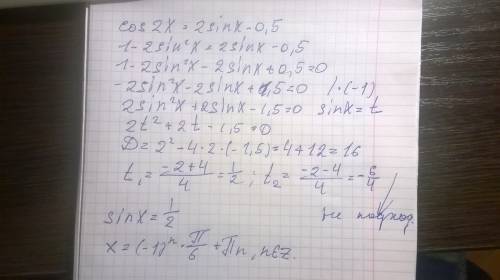 cos2x = 2sinx - 0,5
1 - 2sin²x = 2sinx - 0,5
1 - 2sin²x - 2sinx + 0,5 = 0
-2sin²x - 2sinx + 1,5 = 0 | · (-1)
2sin²x + 2sinx - 1,5 = 0 sinx = t
2t² + 2t - 1,5 = 0
D = 2² - 4 · 2 · (-1,5) = 4 + 12 = 16
t₁ = (-2+4)/4 = 1/2 ; t₂ = (-2-4)/4 = -6/4
не подход.
sinx = 1/2
x = (-1)ⁿ · π/6 + πn, n∈Z.